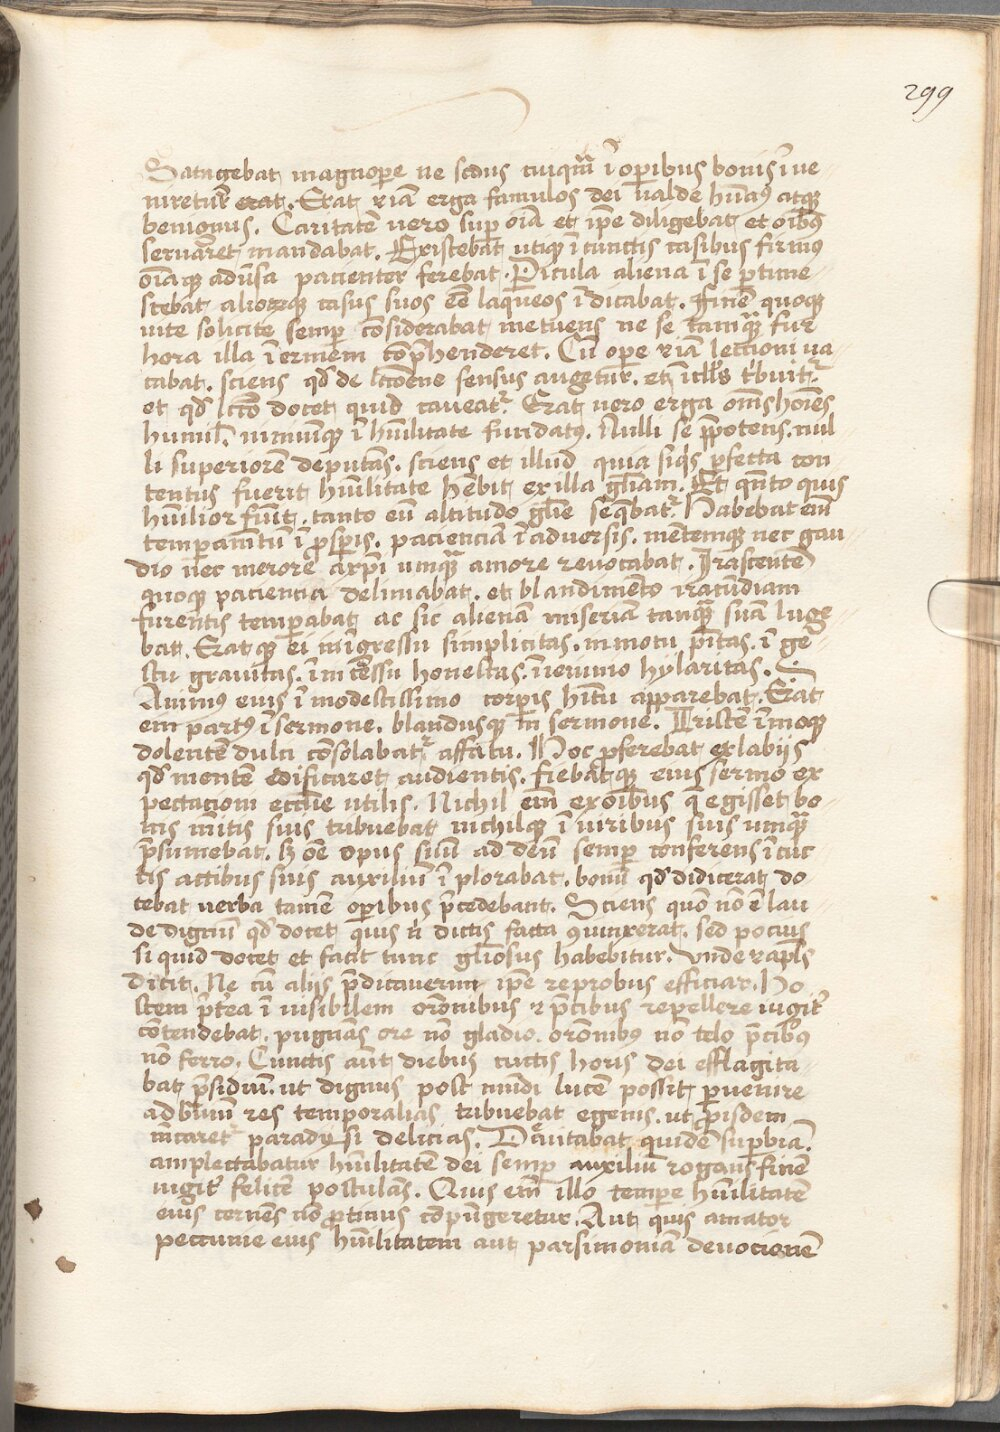 299
Satagebat magnope ne scd̄us cuiqm̄ ī opibus bonis īve
niretur̄ erat. Erat eciā erga famulos dei valde hūan9 atq3
benignus. Caritatē vero sup oīa et ip̄e diligebat et oib9
servaret mandabat. Existebat utiq3 ī cunctis casibus firmus
oīaq3 adv̄sa pacienter ferebat. Picula aliena ī se ptime
scebat alioruq3 casus suos eē laqueos īdicabat. Finē quoq3
vite solicite semp cōsiderabat metuens ne se tamq3 fur
hora illa īermem cōp̄henderet. Cū ope eciā leccioni va
cabat. sciens qd̄ de lcōne sensus augetur. et
et qd̄ lcō docet quid caveat᷑. Erat vero erga om̄s hoīes
humil̄ nimiūq3 ī hūilitate fundat9. Nulli se p̄potens. nul
li superiorē deputās. sciens et illud quia siq̄s pfecta con
tentus fuerit hūilitate hēbit ex illa gl̄iam. Et qn̄to quis
hūilior fūit. tanto eū altitudo gl̄ie seq̄bat᷑. Habebat em̄
tempamtū ī p̄spis. paciencia ī adversis. mētemq3 nec gau
dio nec merore a xp̄i umq3 amore revocabat. Irascentē
quoq3 paciencia deliniabat. et blandimēto iracūdiam
furentis tempabat ac sic alienā miseriā tamq3 suā luge
bat. Eratq3 ei in īgressu simplicitas. in motu p̄itas. ī ge
stu gravitas. ī incessu honestas.
Animus eius ī modestissimo corpis hītu apparebat. Erat
em parc9 ī sermone. blandusq3 in sermone. Tristē īmoq3
dolentē dulci cōsolabat᷑ affatu. Hoc pferebat ex labijs
qd̄ mentē edificaret audientis. fiebatq3 eius sermo ex
pectacioni eccl̄ie utilis. Nichil em̄ ex oībus q̄ egisset bo
nis m̄itis suis tribuebat nichilq3 ī viribus suis umq3
p̄sumebat. s3 oē opus suū ad deū semp conferens ī cūc
tis actibus suis auxiliū īplorabat. bonū qd̄ didicerat do
cebat verba tamē opibus p̄cedebant. Sciens quō nō ē lau
de dignū qd̄ docet quis n̄ dictis facta 9iunxerat. sed pocius
si quid docet et facit tunc gl̄iosus habebitur. Unde et apl̄s
dicit. Ne cū alijs p̄dicaverim ip̄e reprobus efficiar. Ho
stem p̄t̄ea īvisibilem orōnibus et p̄cibus repellere iugit᷑
cōtendebat. pugnās ore nō gladio. orōnibus nō telo p̄cib9
nō ferro. Cunctis aūt diebus cūctis horis dei efflagita
bat p̄sidiū. ut dignus post mūdi lucē possit pvenire
ad res temporalias tribuebat egenis. ut p̄ isdem
m̄caret᷑ paradysi delicias. Devitabat quidē supbiā.
amplectabatur hūilitatē dei semp auxiliū rogans finē
iugit᷑ felicē postulās. Quis em̄ illo tempe hūilitatē
eius cernēs nō p̄tinus cōpūgeretur. Aut quis amator
peccunie eius hūilitatem aut parsimoniā devocionē